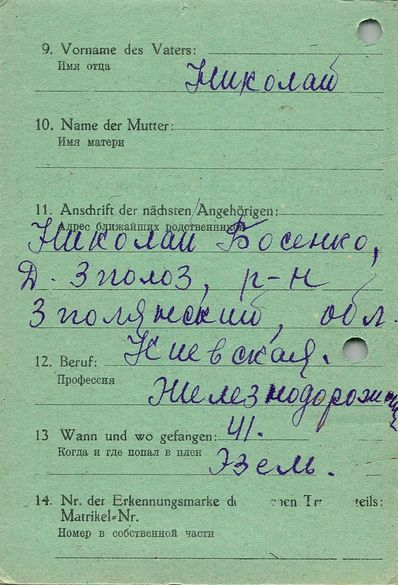 9. Vorname des Vaters:
Имя отца
Николай
10. Name der Mutter:
Имя матери
11. Anschrift der nächsten Angehörigen:
Адрес ближайших родственников
Николай Босенко,
Д. Зполоз, р-н
Зполянский, обл.
Киевская.
12. Beruf:
Профессия
Железнодорожник
13 Wann und wo gefangen: 41.
Когда и где попал в плен
Эзель.
14. Nr. der Erkennungsmarke d en Tr teils:
Matrikel-Nr.
Номер в собственной части